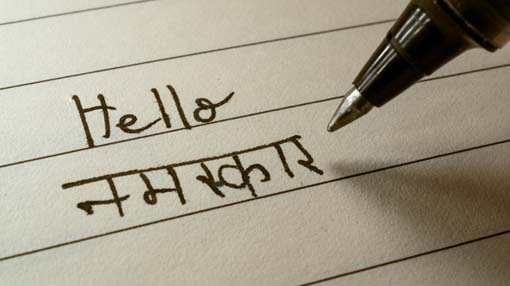 Hello
नमस्कार